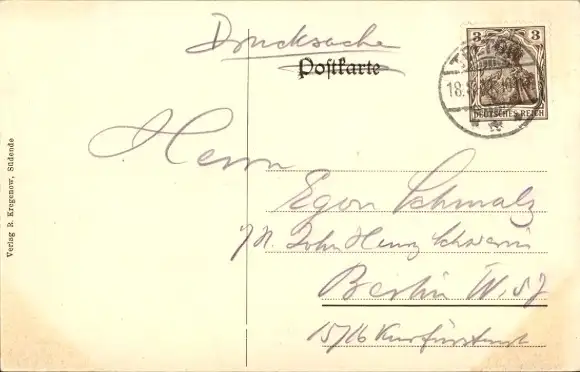 Drucksache
Postkarte
3 3
DEUTSCHES REICH
Herrn
Egon Schmalz
John Henry Schwerin
Berlin W. 57
15/16 Kurfürstenst
Verlag R. Kregenow, Südende